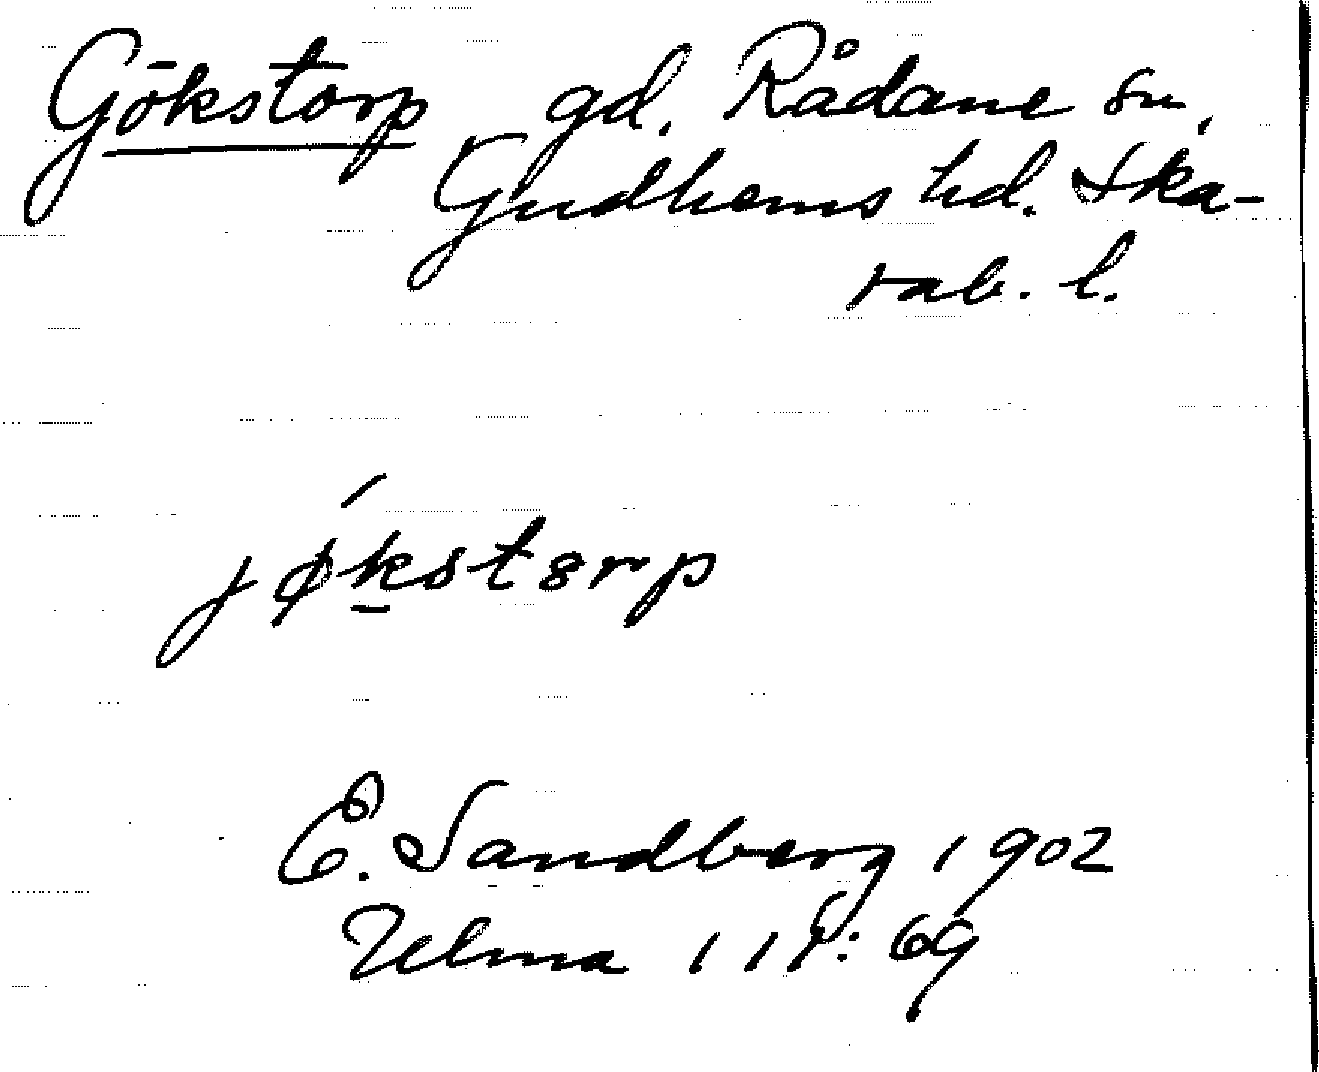 Gökstorp gd. Rådane sn,
Gudhems hd. Ska-
rab. l.
jǿkstorp
E. Sandberg 1902
Ulma 111:69